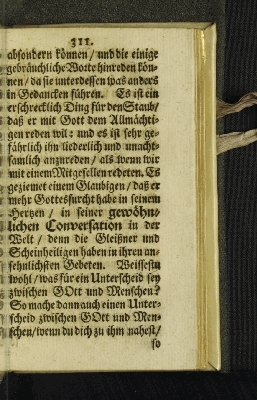 311.
absondern können / und die einige
gebräuchliche Worte hinreden kön-
nen / da sie unterdessen was anders
in Gedancken führen. Es ist ein
erschrecklich Ding für den Staub /
daß er mit Gott dem Allmächti-
gen reden wil: und es ist sehr ge-
fährlich ihn liederlich und unacht-
samlich anzureden / als wenn wir
mit einem Mitgesellen redeten. Es
geziemet einem Glaubigen / daß er
mehr Gottesfurcht habe in seinem
Hertzen / in seiner gewöhn-
lichen Conversation in der
Welt / denn die Gleißner und
Scheinheiligen haben in ihren an-
sehnlichsten Gebeten. Weissestu
wohl / was für ein Unterscheid sey
zwischen GOtt und Menschen?
So mache dann auch einen Unter-
scheid zwischen GOtt und Men-
schen / wenn du dich zu ihm nahest /
so